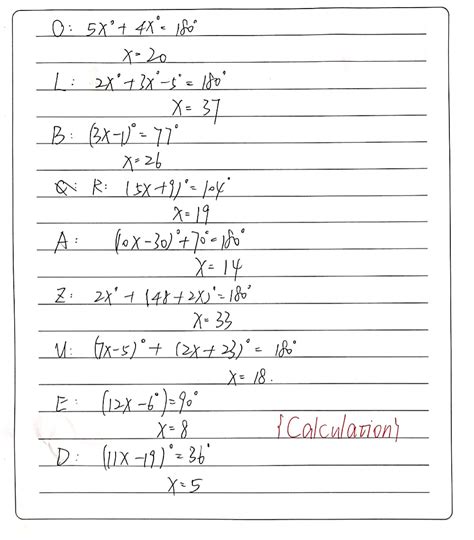 O: 5x° + 4x° = 180°
x = 20
L: 2x° + 3x° - 5° = 180°
x = 37
B: (3x-1)° = 77°
x = 26
Q: R: (5x+9)° = 104°
x = 19
A: (10x-30)° + 70° = 180°
x = 14
Z: 2x° + (48+2x)° = 180°
x = 33
U: (7x-5)° + (2x+23)° = 180°
x = 18.
E: (12x-6°) = 90°
x = 8
{Calculation}
D: (11x-19)° = 36°
x = 5